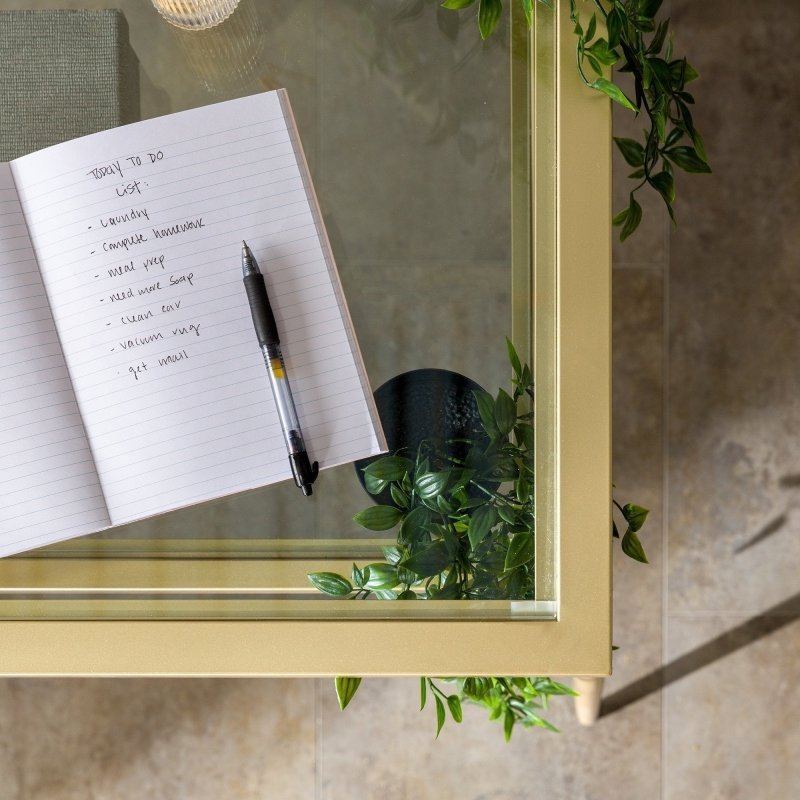 TODAY TO DO
LIST:
- Laundry
- Complete homework
- meal prep
- need more soap
- clean car
- vacuum rug
- get mail